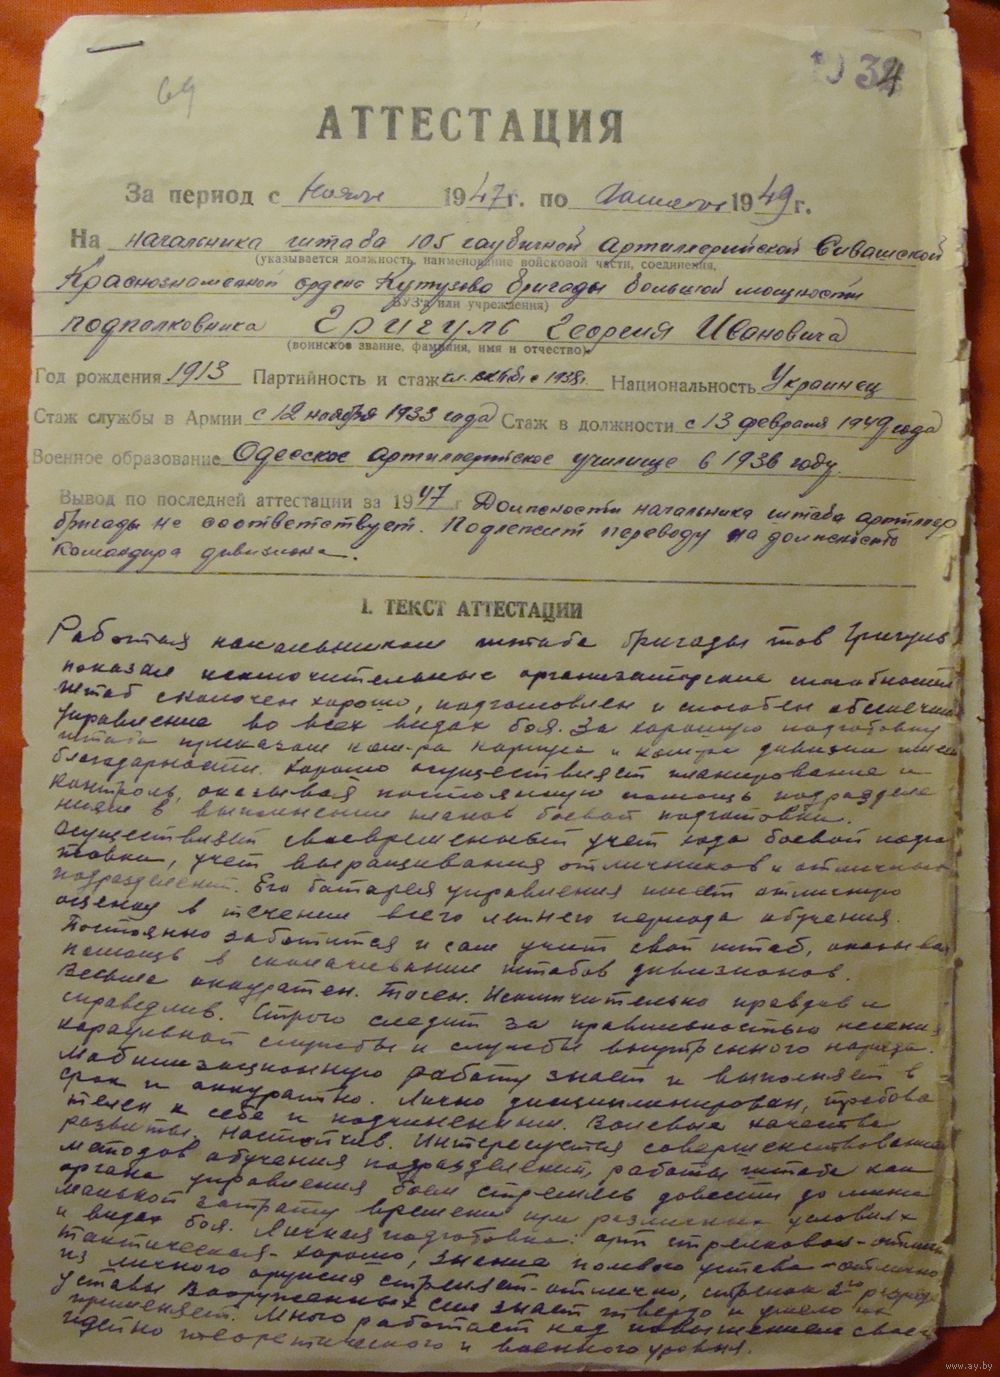 69
34
АТТЕСТАЦИЯ
За период с 1947г. по 1949г.
На начальника штаба 105 гаубичной Артиллерийской Сивашской
(указывается должность, наименование войсковой части, соединения,
Краснознаменной ордена Кутузова бригады большой мощности
ВУЗ'а или учреждения)
подполковника Григуль Георгия Ивановича
(воинское звание, фамилия, имя и отчество)
Год рождения 1913 Партийность и стаж с 1938г. Национальность Украинец
Стаж службы в Армии с 12 ноября 1933 года Стаж в должности с 13 февраля 1949 года
Военное образование Одесское артиллерийское училище в 1936 году
Вывод по последней аттестации за 1947 г Должности начальника штаба артиллер
бригады не соответствует. Подлежит переводу на должность
командира дивизиона.
I. ТЕКСТ АТТЕСТАЦИИ
Работая начальником штаба бригады тов Григуль
показал исключительные организаторские способности
Штаб сколочен хорошо, подготовлен и способен обеспечить
управление во всех видах боя. За хорошую подготовку
штаба приказам ком-ра корпуса и ком-ра дивизии имеет
благодарности. Хорошо осуществляет планирование и
контроль, оказывая постоянную помощь подразделе
ниям в выполнении планов боевой подготовки.
Осуществляет своевременный учет хода боевой подго
товки, учет выращивания отличников и отличных
подразделений. Его батарея управления имеет отличную
оценку в течении всего летнего периода обучения.
Постоянно заботится и сам учит свой штаб, оказывая
помощь в сколачивании штабов дивизионов.
Весьма аккуратен. Точен. Исключительно правдив и
справедлив. Строго следит за правильностью несения
караульной службы и службы внутреннего наряда.
Мобилизационную работу знает и выполняет в
срок и аккуратно. Лично дисциплинирован, требова
телен к себе и подчиненным. Волевые качества
развиты. Настойчив. Интересуется совершенствованием
методов обучения подразделений, работы штаба как
органа управления боем стремясь довести до мини
мальной затрату времени при различных условиях
и видах боя. Личная подготовка: арт стрелковая - отлич
тактическая - хорошо, знание полевого устава - отлично,
из личного оружия стреляет - отлично, стрелок 2го разряда
Уставы Вооруженных сил знает твердо и умело их
применяет. Много работает над повышением своего
идейно теоретического и военного уровня.
www.ay.by